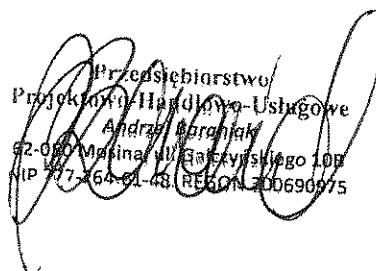 Przedsiębiorstwo
Projektowo-Handlowo-Usługowe
Andrzej Baraniak
62-050 Mosina, ul. Gałczyńskiego 10B
NIP 777-264-61-48, REGON 300690975